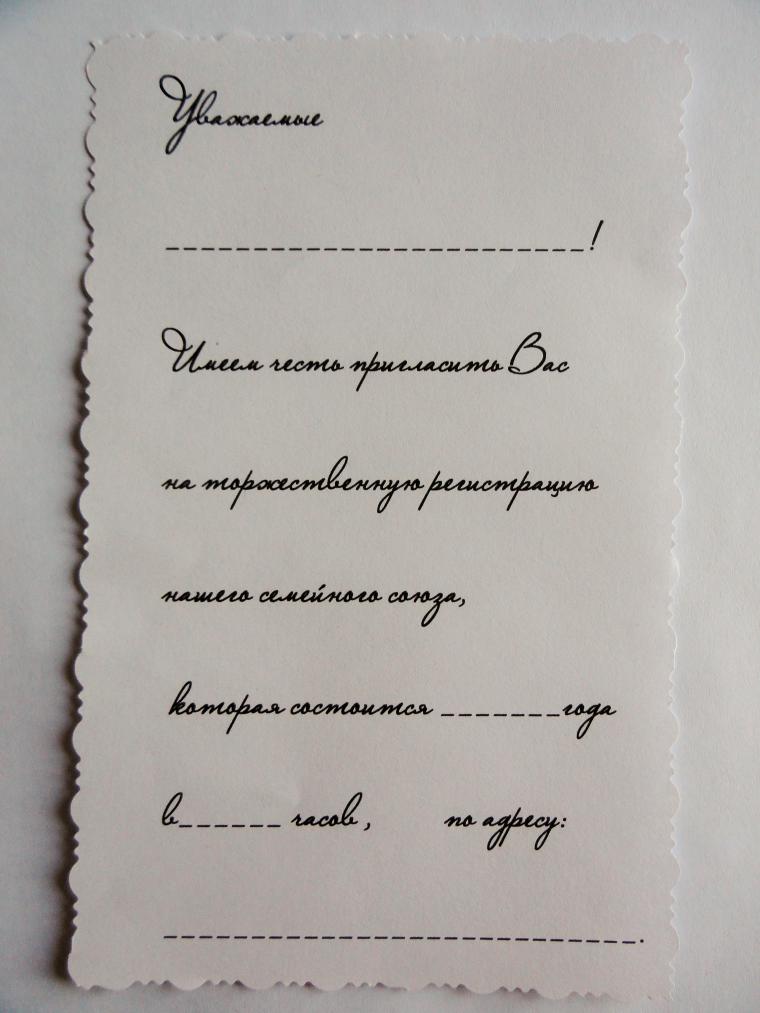 Уважаемые
________________________!
Имеем честь пригласить Вас
на торжественную регистрацию
нашего семейного союза,
которая состоится _______года
в______ часов, по адресу:
___________________________.